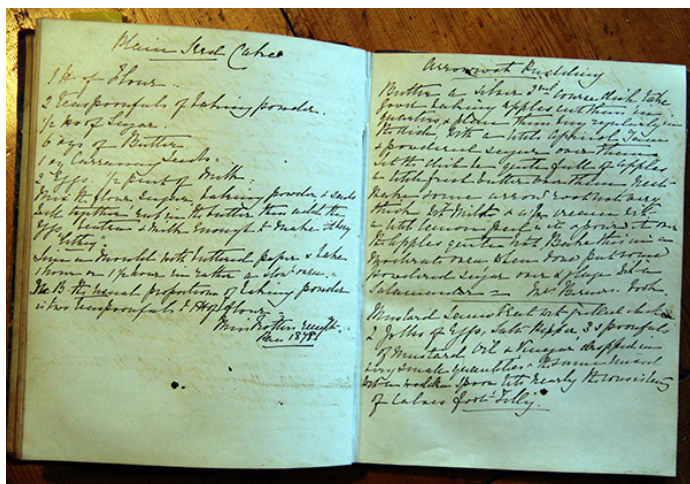 Plain Seed Cake
1 lb of Flour.
2 Teaspoonfuls of baking powder.
1/2 lb of Sugar.
6 ozs of Butter.
1 oz Carraway Seeds.
2 Eggs, 1/2 pint of Milk
Mix the flour, sugar, baking powder & seeds
well together, rub in the butter then add the
Eggs, beaten & Milk enough to make it very
Line a mould with buttered paper & bake
1 hour or 1 1/2 hour in rather a slow oven.
The usual proportion of baking powder
is two teaspoonfuls to 1 lb of flour.
1878
Arrowroot Pudding
Butter a silver 3rd course dish take
good baking apples cut them in
quarters & place them very regularly in
the dish with a little Apricot Jam
& powdered sugar over them
let the dish be quite full of apples
make some arrowroot not very
thick with Milk & a
a little lemon peel in it & pour it over
the apples quite hot Bake this in a
moderate oven when done put some
powdered sugar over & glaze with a
Salamander
Mustard Sauce
2 Yolks of Eggs, Salt Pepper 3 spoonfuls
of Mustard Oil & Vinegar dropped in
very small quantities
wooden spoon till nearly the consistency
of Calves foot Jelly.